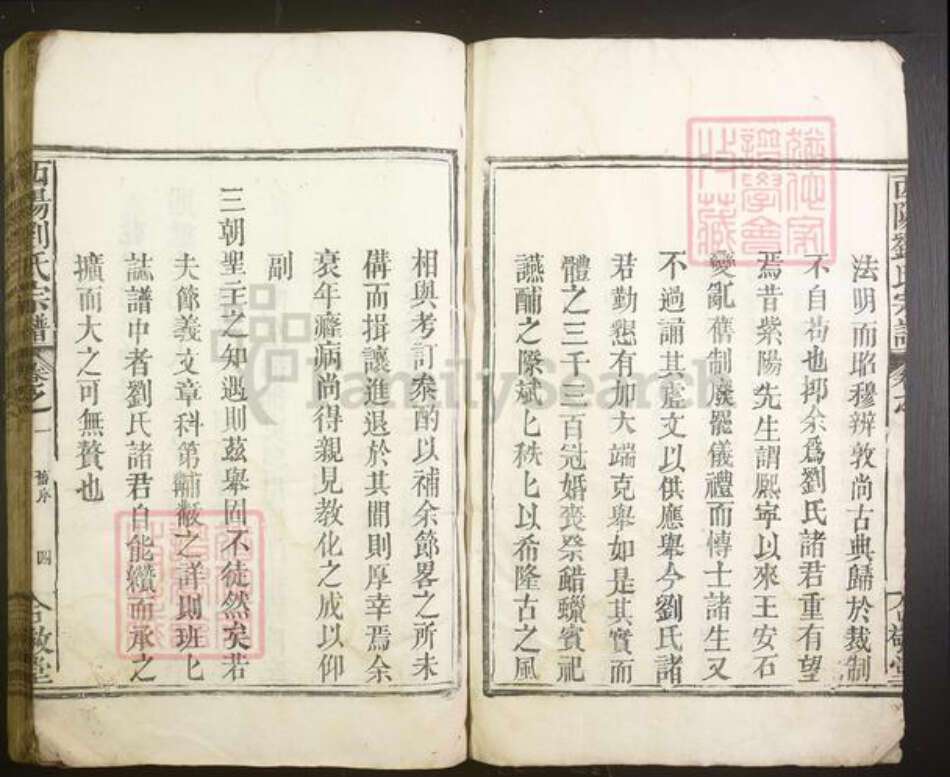 法明而昭穆辨敦尚古典歸於裁制
不自茍也抑余爲劉氏諸君重有望
焉昔紫陽先生謂熙寧以來王安石
變亂舊制廢罷儀禮而博士諸生又
不過誦其虛文以供應舉今劉氏諸
君勤懇有加大端克舉如是其實而
體之三千三百冠婚喪祭蜡蠟賓祀
讌酺之際斌匕秩匕以希隆古之風
相與考訂叅酌以補余節畧之所未
備而揖讓進退於其間則厚幸焉余
衰年癃病尚得親見教化之成以仰
副
三朝聖主之知遇則茲舉固不徒然矣若
夫節義文章科第黼黻之詳則班匕
誌譜中者劉氏諸君自能纘而承之
擴而大之可無贅也
西陽劉氏宗譜
卷之一
舊序
四
合敬堂
FamilySearch